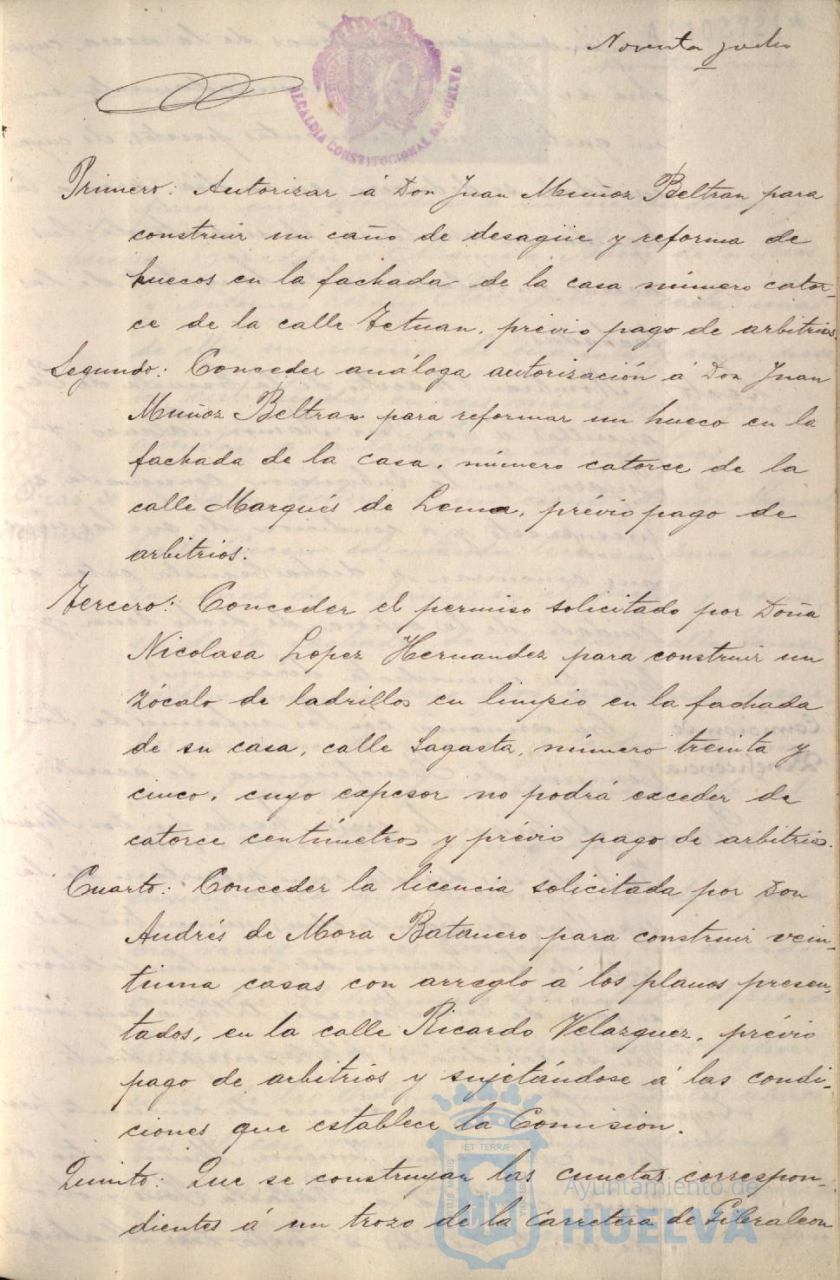 Noventa y ocho
ALCALDIA CONSTITUCIONAL DE HUELVA
Primero: Autorizar á Don Juan Muñoz Beltran para
construir un caño de desagüe y reforma de
huecos en la fachada de la casa número cator-
ce de la calle Tetuan, prévio pago de arbitrios.
Segundo: Conceder análoga autorización á Don Juan
Muñoz Beltran para reformar un hueco en la
fachada de la casa, número catorce de la
calle Marqués de Lema, prévio pago de
arbitrios.
Tercero: Conceder el permiso solicitado por Doña
Nicolasa Lopez Hernandez para construir un
zócalo de ladrillos en limpio en la fachada
de su casa, calle Sagasta, número treinta y
cinco, cuyo expesor no podrá exceder de
catorce centímetros y prévio pago de arbitrios.
Cuarto: Conceder la licencia solicitada por Don
Andrés de Mora Batanero para construir vein-
tiuna casas con arreglo á los planos presen-
tados, en la calle Ricardo Velazquez, prévio
pago de arbitrios y sujetándose á las condi-
ciones que establece la Comision.
Quinto: Que se construyan las cunetas correspon-
dientes á un trozo de la Carretera de Gibraleon
Ayuntamiento de
HUELVA